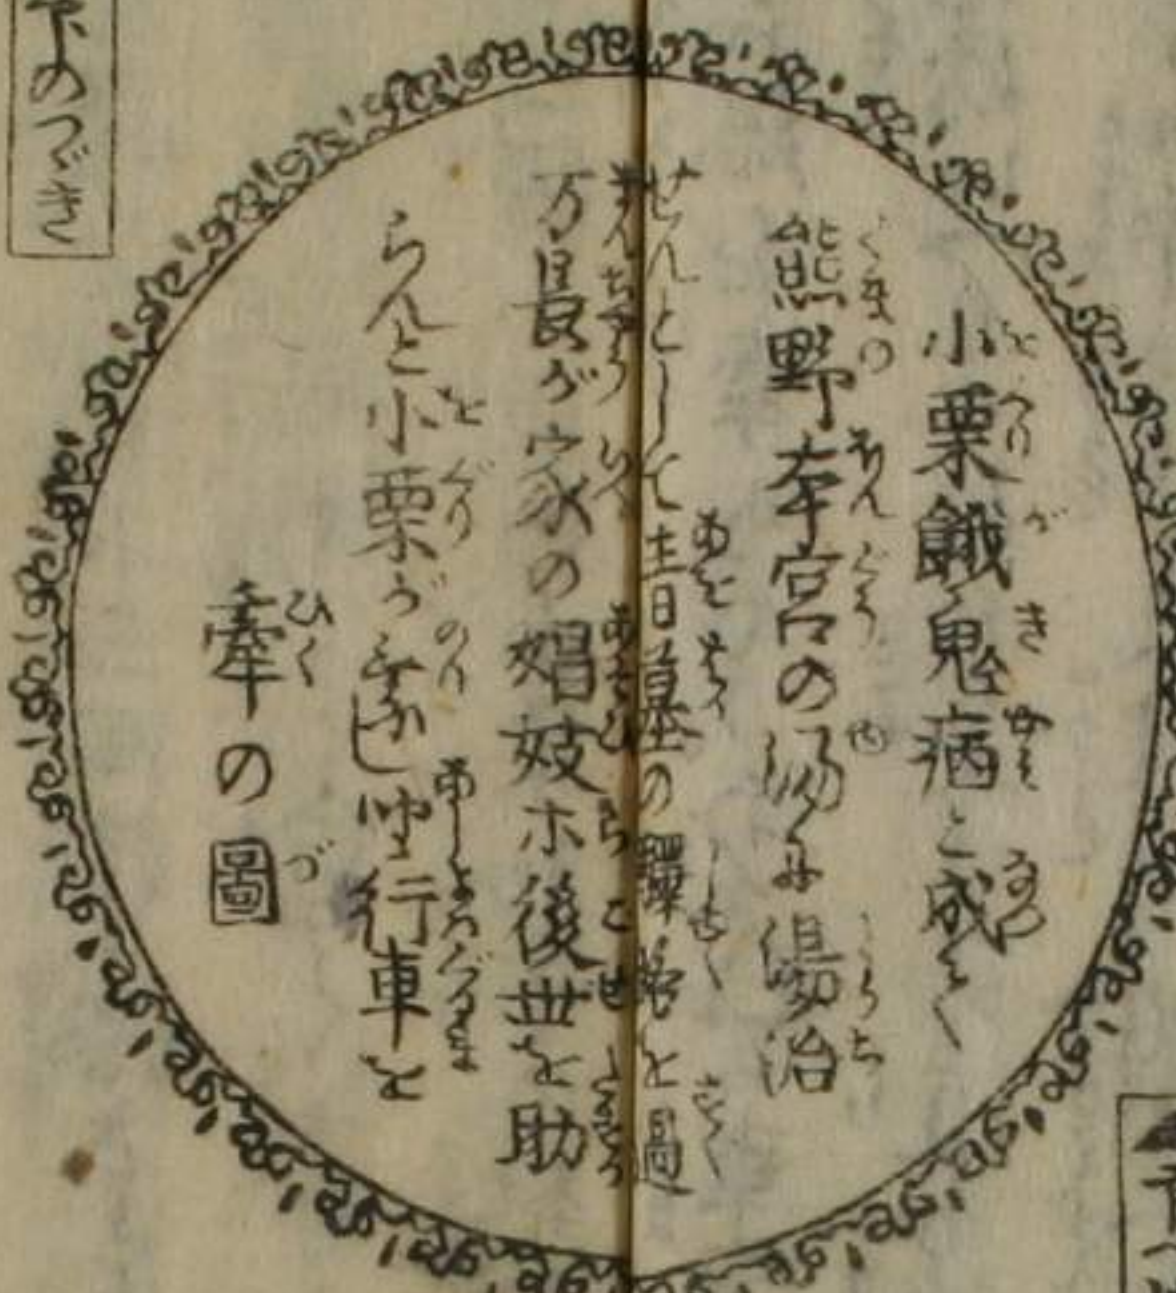 小栗餓鬼病と成て
熊野本宮の湯に湯治
せんとして青墓の驛を過
万長が家の娼妓ホ後世を助
らんと小栗が乗し行車を
牽の圖
下のつゞき